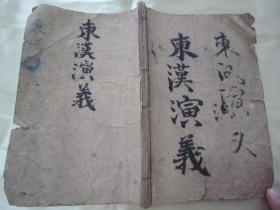 東漢演義
東漢演義
東漢演义